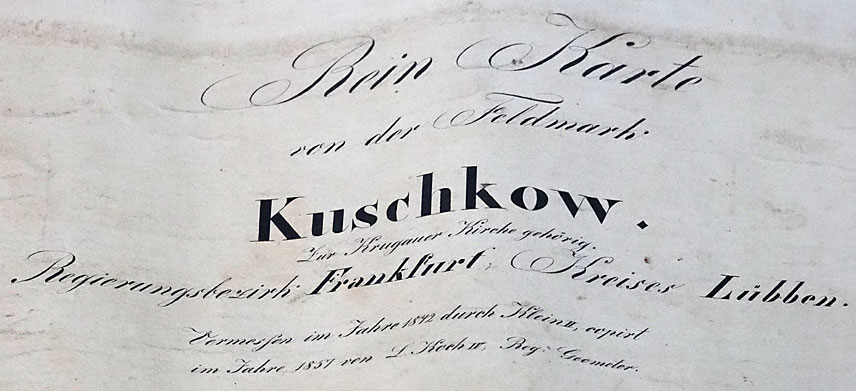 Rein Karte
von der Feldmark
Kuschkow.
Zur Krugauer Kirche gehörig.
Regierungsbezirk Frankfurt, Kreises Lübben.
Vermessen im Jahre 1842 durch Klein II, copirt
im Jahre 1857 von L. Koch IV, Reg. Geometer.